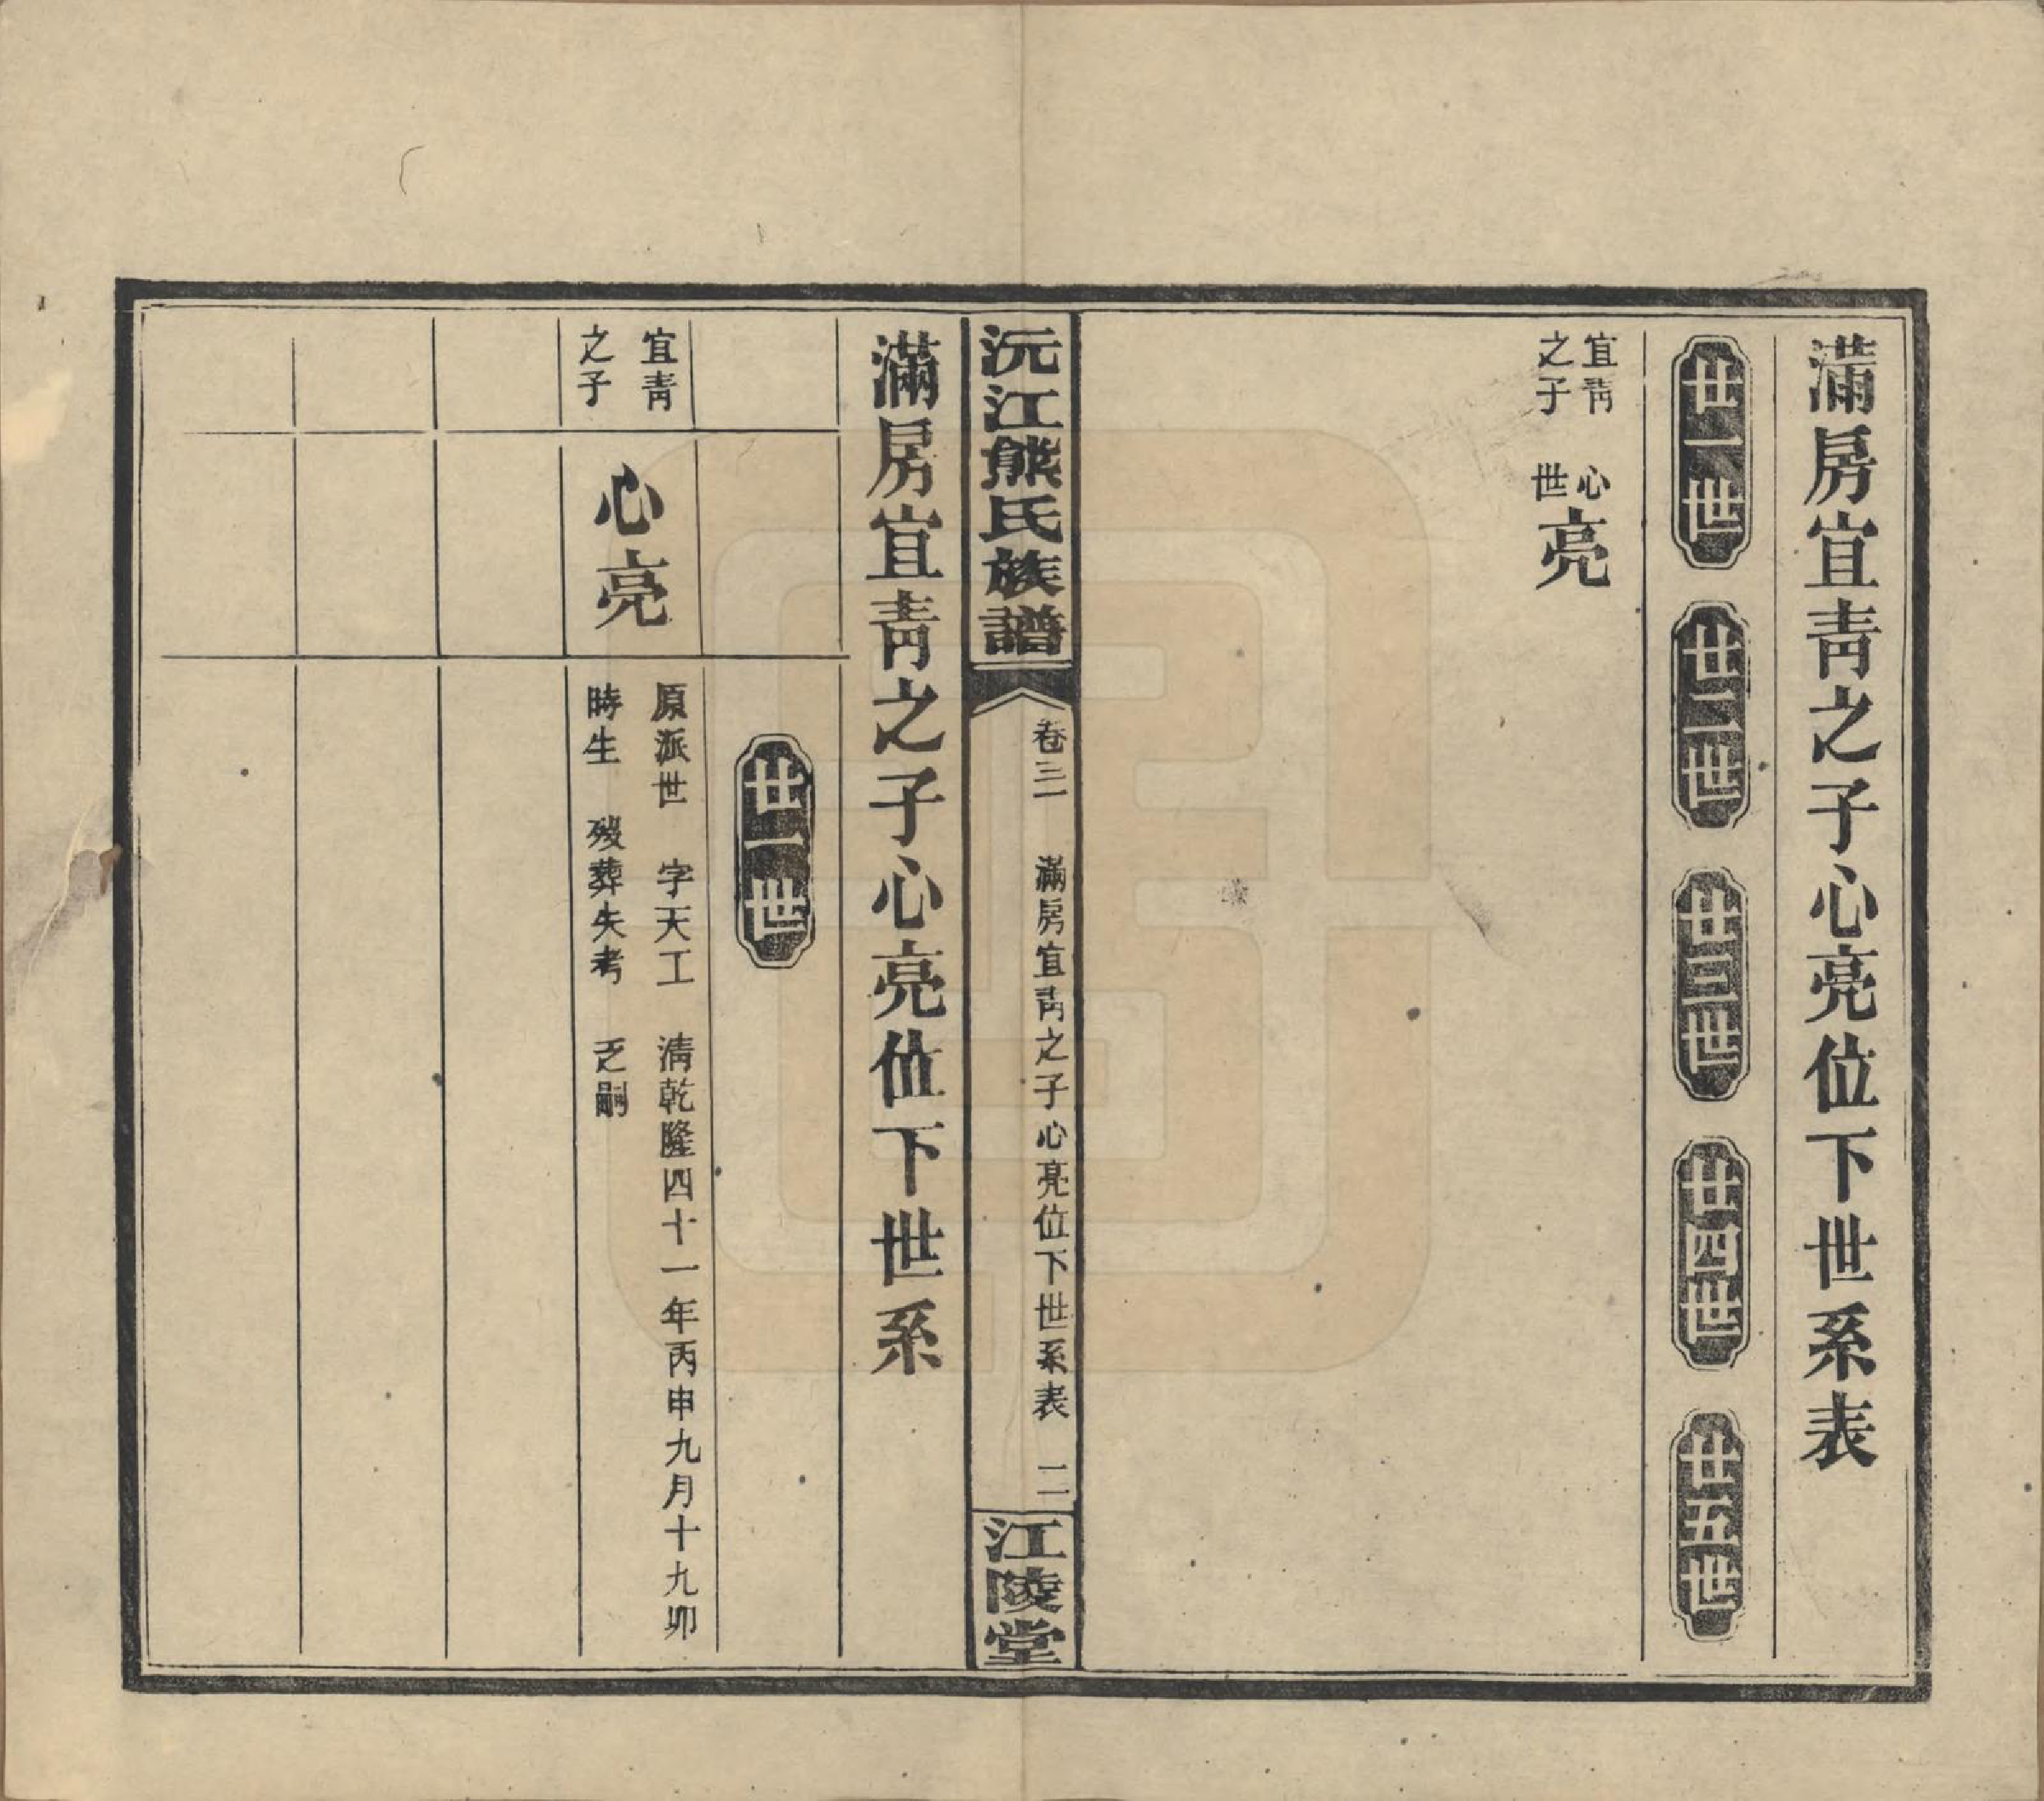 滿房宜靑之子心亮位下世系表
廿一世
廿二世
廿三世
廿四世
廿五世
宜靑
之子
心
世
亮
沅江熊氏族譜
卷三一
滿房宜靑之子心亮位下世系表
二
江陵堂
滿房宜靑之子心亮位下世系
廿一世
宜靑
之子
心亮
原派世 字天工 清乾隆四十一年丙申九月十九卯
時生 歿葬失考 乏嗣